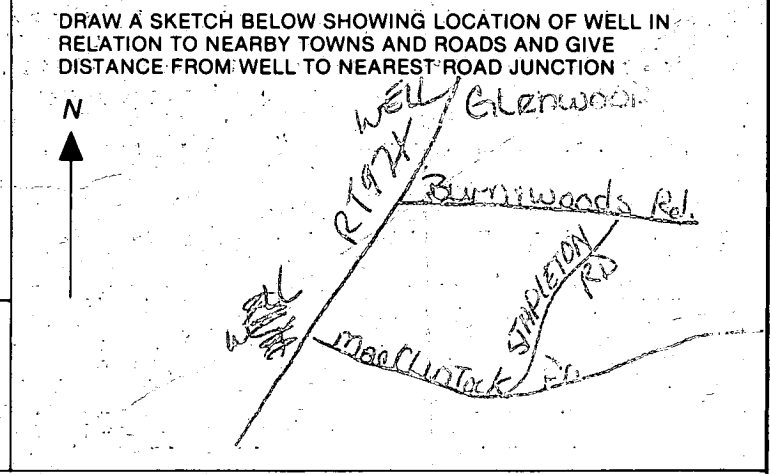 DRAW A SKETCH BELOW SHOWING LOCATION OF WELL IN
RELATION TO NEARBY TOWNS AND ROADS AND GIVE
DISTANCE FROM WELL TO NEAREST ROAD JUNCTION
N
WELL
Glenwood
Burntwoods Rd.
STAPLETON
RD
WELL
MacClinTock Rd